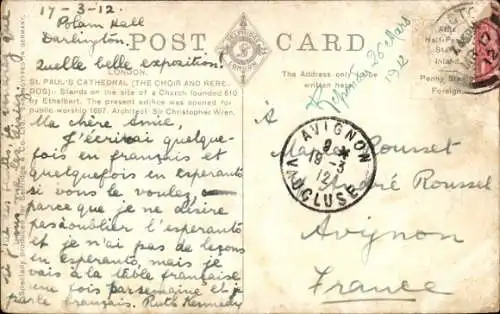 17-3-12.
Polam Hall
Darlington.
Quelle belle exposition.
POST CARD
LONDON.
ST. PAUL'S CATHEDRAL (THE CHOIR AND RERE-
DOS):- Stands on the site of a Church founded 610
by Ethelbert. The present edifice was opened for
public worship 1697. Architect: Sir Christopher Wren.
Ma chère amie,
J'écrirai quelque-
fois en français et
quelquefois en esperanto
si vous le voulez,
parce que je ne désire
pas oublier l'esperanto
et je n'ai pas de leçons
en esperanto, mais je
vais à la table française
une fois par semaine et je
parle français. Ruth Kennedy
The Address only to be
written here.
26 Mars
1912
AVIGNON
19-3
12
VAUCLUSE
A
Rousset
André Roussel
Avignon
France
Penny Stamp
Foreign